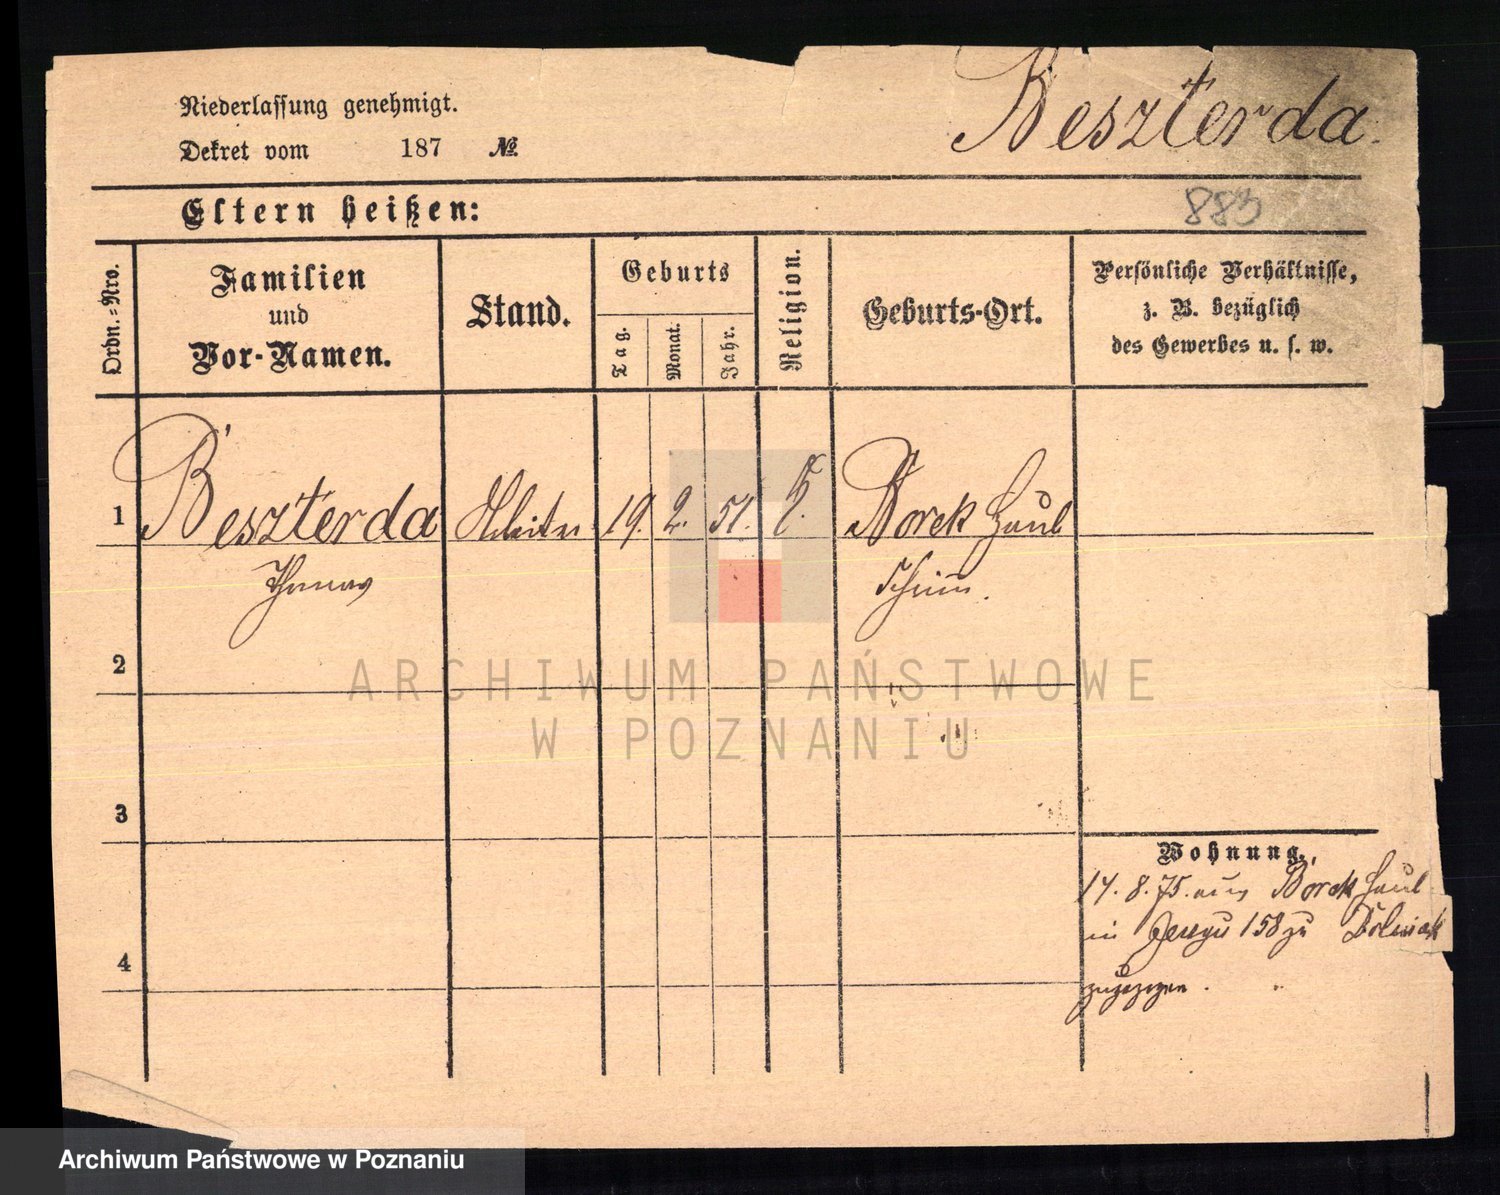 Niederlassung genehmigt.
Beszterda.
Dekret vom 187 №
Eltern heißen:
883
Ordn.=Nro.
Familien
und
Vor-Namen.
Stand.
Geburts
Tag.
Monat.
Jahr.
Religion.
Geburts-Ort.
Persönliche Verhältnisse,
z. B. bezüglich
des Gewerbes u. s. w.
1 Beszterda 19. 2. 51. Borek Haul
Thomas
2
ARCHIWUM PAŃSTWOWE
W POZNANIU
3
Wohnung.
14. 8. 75. aus Borek Haul
in Jersyu 158 zu
4
zugezogen.
Archiwum Państwowe w Poznaniu